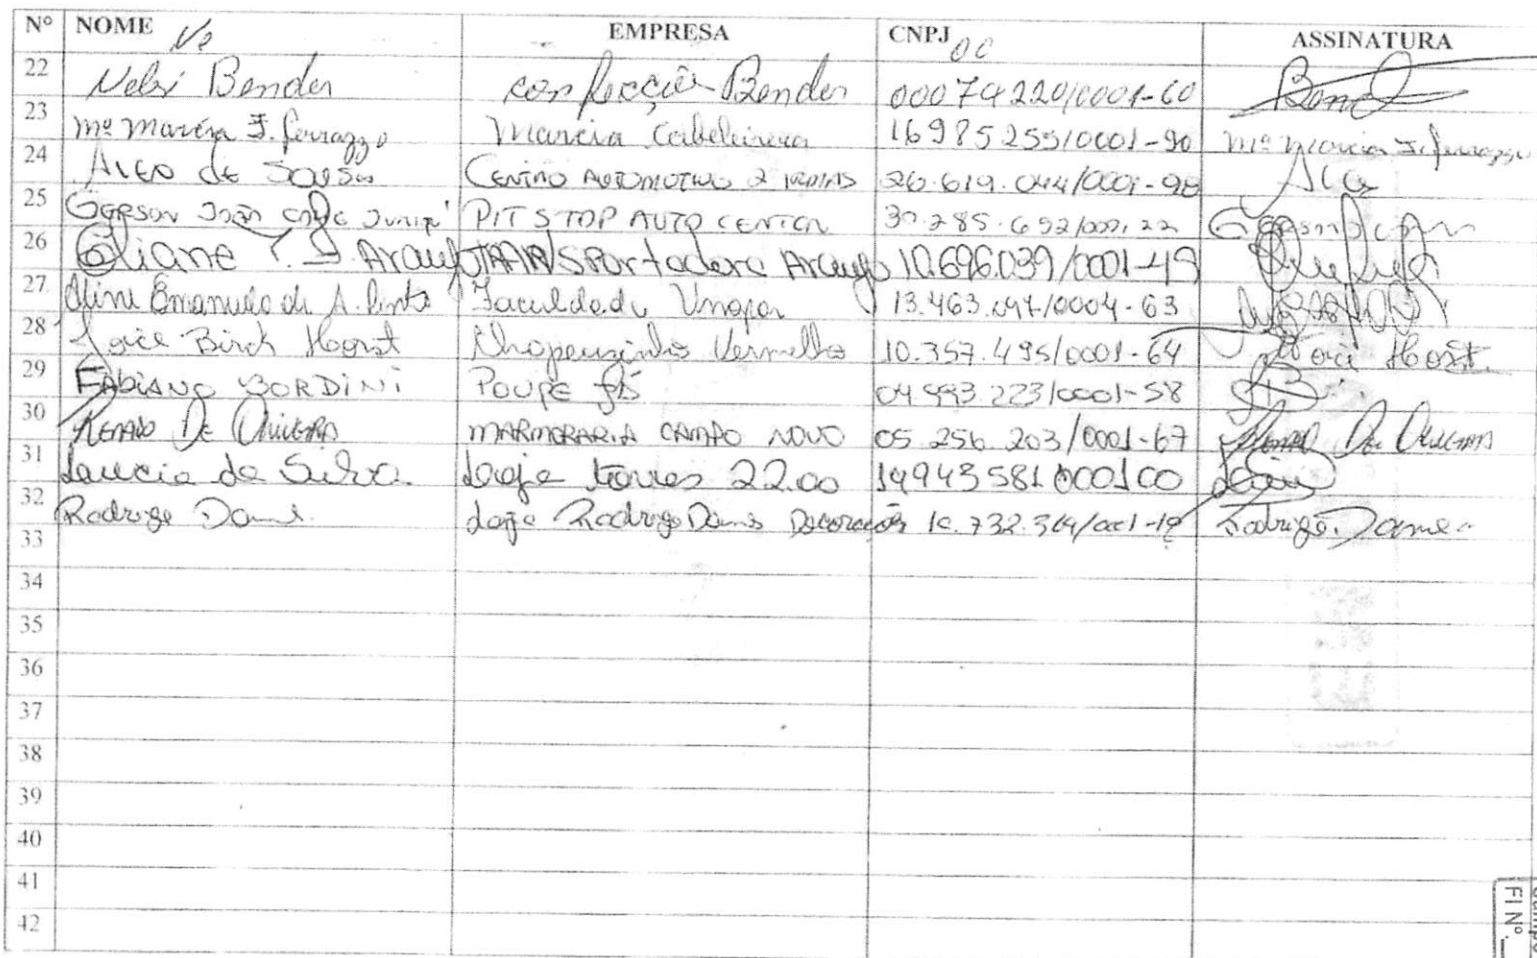 Nº NOME EMPRESA CNPJ ASSINATURA
22 Nelsi Bender confecção Bender 00074220/0001-60 Bend
23 Mª Marcia F. Ferrazzo Marcia Cabeleireira 16985255/0001-90 Mª Marcia F. Ferrazzo
24 ALEO de Sousa CENTRO AUTOMOTIVO 2 IRMÃOS 26.619.044/0001-98
25 GERSON João Junior PIT STOP AUTO CENTER 30.285.692/0001-22
26 Eliane T. J. Araujo TRANSPortadora Araujo 10.696.039/0001-49
27 Aline Emanuele de A. Pinto Faculdade Unopar 13.463.497/0004-63
28 Joice Birck Horst Chapeuzinho Vermelho 10.357.495/0001-64 Joice Horst
29 FABIANO BORDINI POUPE 04 993 223/0001-58
30 RENATO DE OLIVEIRA MARMORARIA CAMPO NOVO 05 256 203/0001-67 Renato De Oliveira
31 Laucia da Silva Loja torres 22.00 14943581000100
32 Rodrigo Dame Loja Rodrigo Dames Decorações 10.732.364/0001-19 Rodrigo Dame
33
34
35
36
37
38
39
40
41
42
Fl Nº